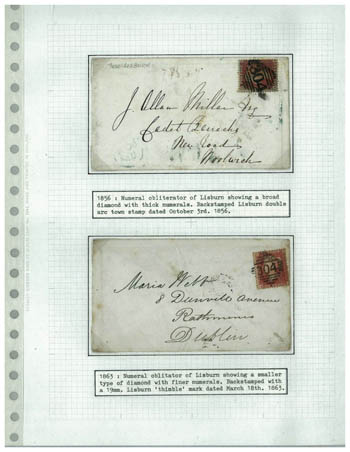 304
J. Allan Miller Esq
Cadet Derechs
New Road
Woolwich
1856 : Numeral obliterator of Lisburn showing a broad
diamond with thick numerals. Backstamped Lisburn double
arc town stamp dated October 3rd. 1856.
304
Maria Webb
8 Dunville Avenue
Rathmines
Dublin
1863 : Numeral oblitator of Lisburn showing a smaller
type of diamond with finer numerals. Backstamped with
a 19mm. Lisburn 'thimble' mark dated March 18th. 1863.